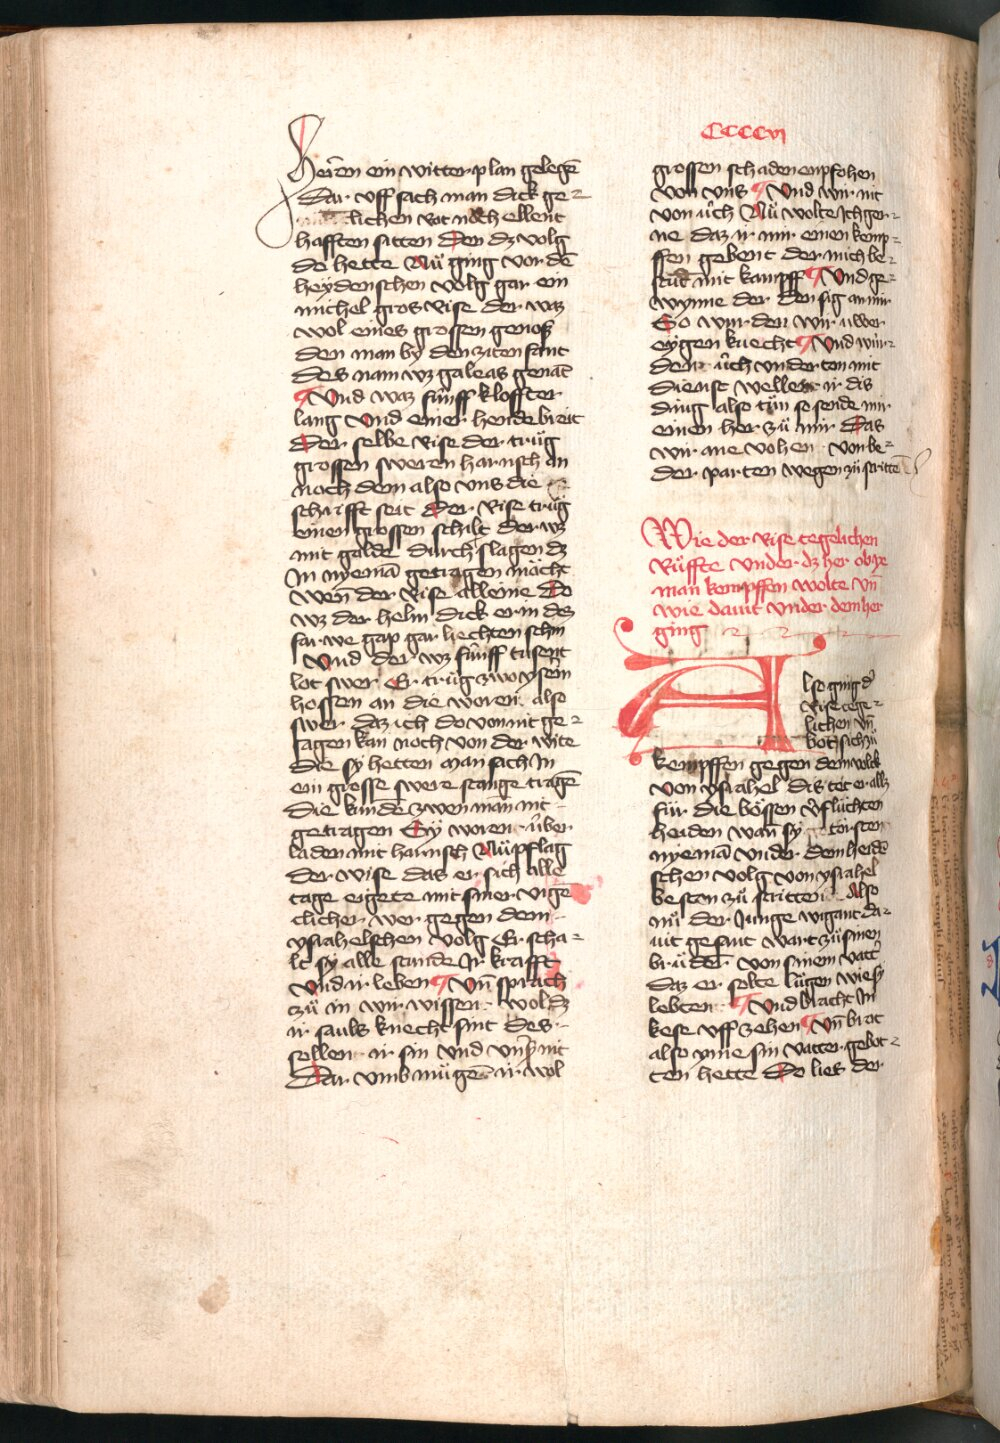 CCCCVI
heren ein witter plan gelegē
Dar vff sach man dick ge⸗
lichen Rot noch ellent
hafften sitten Den dz volg
do hette Nü ging vor dē
heydenschen volg gar ein
michel gros Rise der waz
wol eines grossen genosz
den man by den ziten fant
des nam wz galeas genāt
¶ Vnd waz fünff kloffter
lang Vnd einer hende breit
Der selbe Rise der trüg
grossen sweren harnsch an
noch dem also vns die
schrifft seit Der Rise trüg
einen grossen schilt der wz
mit golde durch slagen dz
In nyemā getragen mächt
wen der Rise alleine Do
wz der helm dick er in des
farwe gap gar liechten schin
Vnd der wz fünff tusent
lot swer Er trüg zwo ysein
hossen an die woren also
swer daz ich do von nit ge⸗
sagen kan noch von der wite
die sy hetten man sach In
ein grosse swere stange tragē
die kunde zwen man nit
getragen Sy woren über
laden mit harnsch Nü pflag
der Rise das er sich alle
tage eigete mit siner vige
clicher wer gegen dem
ysrahelschen volg Er scha⸗
lt sy alle stunde Ir krafft
Vnd ir leben ¶ Vn̄ sprach
zü in wir wissen wol dz
ir sauls knecht sint des
sollen ir sin vnd vnser nit
Dar vmb mügen ir wol
grossen schaden enpfohen
von vns ¶ Vnd wir nit
von üch Nü wolte Ich ger⸗
ne daz ir mir einen kemp⸗
ffen gebent der mich be⸗
stat mit kampff ¶ Vnd ge⸗
wynne der den sig an mir
So wurden wir uwer
eygen knecht ¶ Vnd wür⸗
dent üch vnderton mit
dienst wellent ir dis
ding also tün so sende mir
einen her zü mir Das
wir ane vohen von be⸗
der parten wegen zü stritte
Wie der Rise tegelichen
Rüffte vnder dz her ob ye
man kempffen wolte vn̄
wie dauit vnder dem her
ging
Also ging d̛
Rise tege⸗
lichen vn̄
bot sich zü
kempffen gegen dem volck
von ysrahel dis tet er allz
für die bössen v̛flüchten
heiden wan sy torsten
nyemā vnder dem heidē
schen volg von ysrahel
besten zü stritten Also
nü der Junge wigant da⸗
uit gesant wart zü sinen
brüder von sinem vatt̛
daz er solte lügen wie sy
lebten ¶ Vnd bracht In
kese vff zehen ¶ Vn̄ brot
also yme sin vatter gebot⸗
ten hette Do lies der